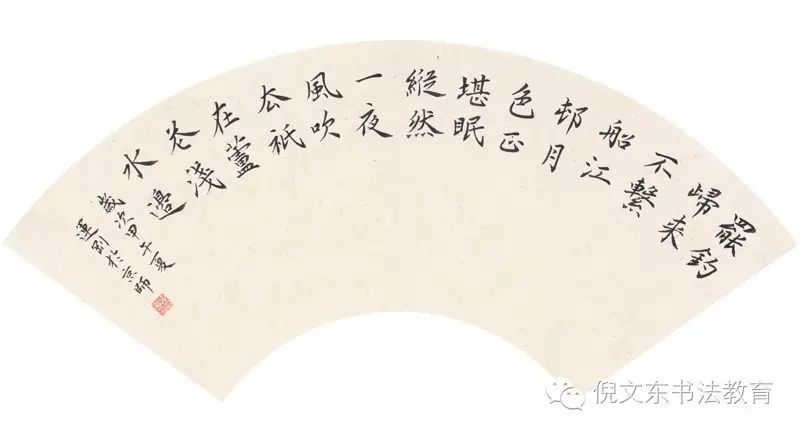 罷釣
歸来
不繫
船江
邨月
色正
堪眠
縱然
一夜
風吹
去祇
在蘆
花淺
水邊
歲次甲午夏
運於京師
倪文东书法教育